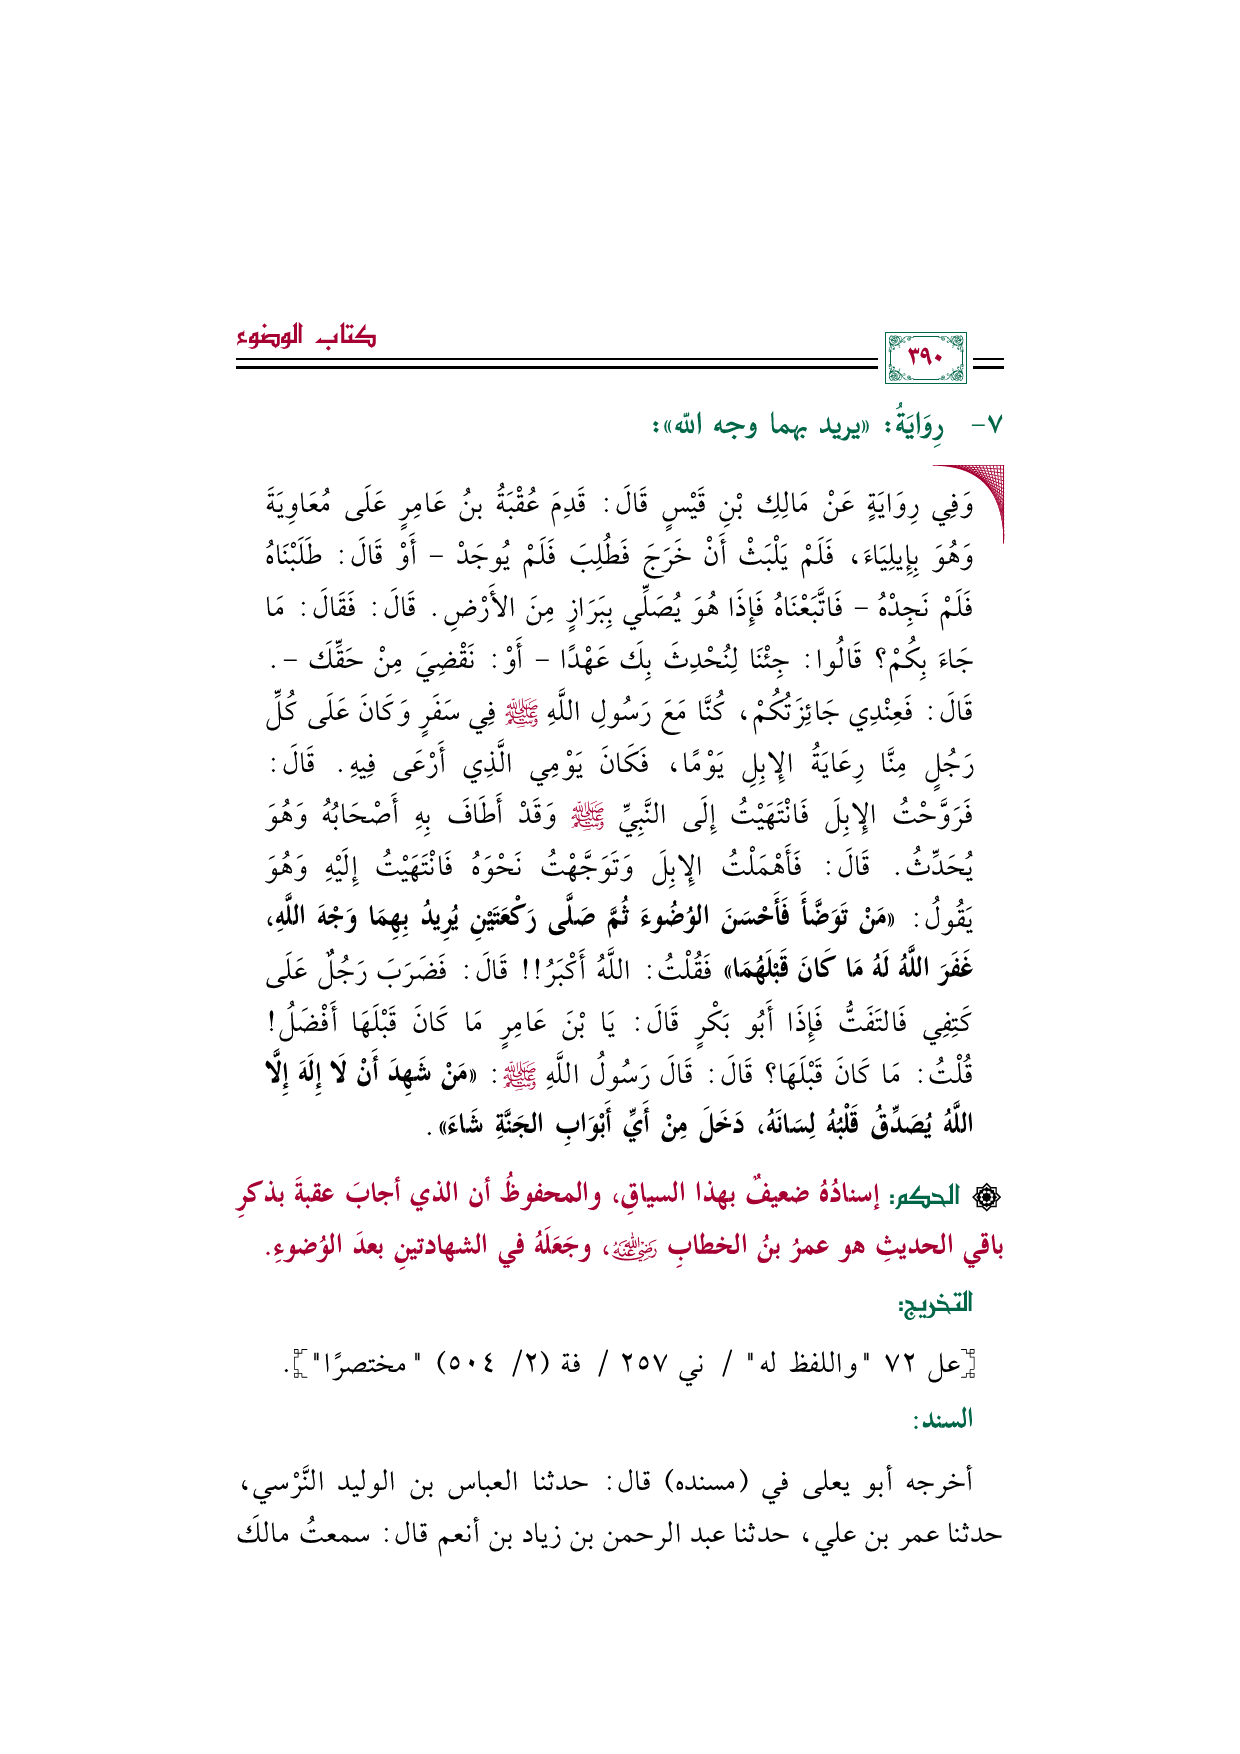 كتاب الوضوء
٣٩٠
٧- رِوَايَةُ: «يريد بهما وجه الله»:
وَفِي رِوَايَةٍ عَنْ مَالِكِ بْنِ قَيْسٍ قَالَ: قَدِمَ عُقْبَةُ بنُ عَامِرٍ عَلَى مُعَاوِيَةَ
وَهُوَ بِإِيلِيَاءَ، فَلَمْ يَلْبَثْ أَنْ خَرَجَ فَطُلِبَ فَلَمْ يُوجَدْ – أَوْ قَالَ: طَلَبْنَاهُ
فَلَمْ نَجِدْهُ – فَاتَّبَعْنَاهُ فَإِذَا هُوَ يُصَلِّي بِبَرَازٍ مِنَ الأَرْضِ. قَالَ: فَقَالَ: مَا
جَاءَ بِكُمْ؟ قَالُوا: جِئْنَا لِنُحْدِثَ بِكَ عَهْدًا – أَوْ: نَقْضِيَ مِنْ حَقِّكَ –.
قَالَ: فَعِنْدِي جَائِزَتُكُمْ، كُنَّا مَعَ رَسُولِ اللَّهِ ﷺ فِي سَفَرٍ وَكَانَ عَلَى كُلِّ
رَجُلٍ مِنَّا رِعَايَةُ الإِبِلِ يَوْمًا، فَكَانَ يَوْمِي الَّذِي أَرْعَى فِيهِ. قَالَ:
فَرَوَّحْتُ الإِبِلَ فَانْتَهَيْتُ إِلَى النَّبِيِّ ﷺ وَقَدْ أَطَافَ بِهِ أَصْحَابُهُ وَهُوَ
يُحَدِّثُ. قَالَ: فَأَهْمَلْتُ الإِبِلَ وَتَوَجَّهْتُ نَحْوَهُ فَانْتَهَيْتُ إِلَيْهِ وَهُوَ
يَقُولُ: «مَنْ تَوَضَّأَ فَأَحْسَنَ الوُضُوءَ ثُمَّ صَلَّى رَكْعَتَيْنِ يُرِيدُ بِهِمَا وَجْهَ اللَّهِ،
غَفَرَ اللَّهُ لَهُ مَا كَانَ قَبْلَهُمَا» فَقُلْتُ: اللَّهُ أَكْبَرُ!! قَالَ: فَضَرَبَ رَجُلٌ عَلَى
كَتِفِي فَالتَفَتُّ فَإِذَا أَبُو بَكْرٍ قَالَ: يَا بْنَ عَامِرٍ مَا كَانَ قَبْلَهَا أَفْضَلُ!
قُلْتُ: مَا كَانَ قَبْلَهَا؟ قَالَ: قَالَ رَسُولُ اللَّهِ ﷺ: «مَنْ شَهِدَ أَنْ لَا إِلَهَ إِلَّا
اللَّهُ يُصَدِّقُ قَلْبُهُ لِسَانَهُ، دَخَلَ مِنْ أَيِّ أَبْوَابِ الجَنَّةِ شَاءَ».
الحكم: إسنادُهُ ضعيفٌ بهذا السياقِ، والمحفوظُ أن الذي أجابَ عقبةَ بذكرِ
باقي الحديثِ هو عمرُ بنُ الخطابِ رضي الله عنه، وجَعَلَهُ في الشهادتينِ بعدَ الوُضوءِ.
التخريج:
[عل ٧٢ "واللفظ له" / ني ٢٥٧ / فة (٢/ ٥٠٤) "مختصرًا"].
السند:
أخرجه أبو يعلى في (مسنده) قال: حدثنا العباس بن الوليد النَّرْسي،
حدثنا عمر بن علي، حدثنا عبد الرحمن بن زياد بن أنعم قال: سمعتُ مالكَ